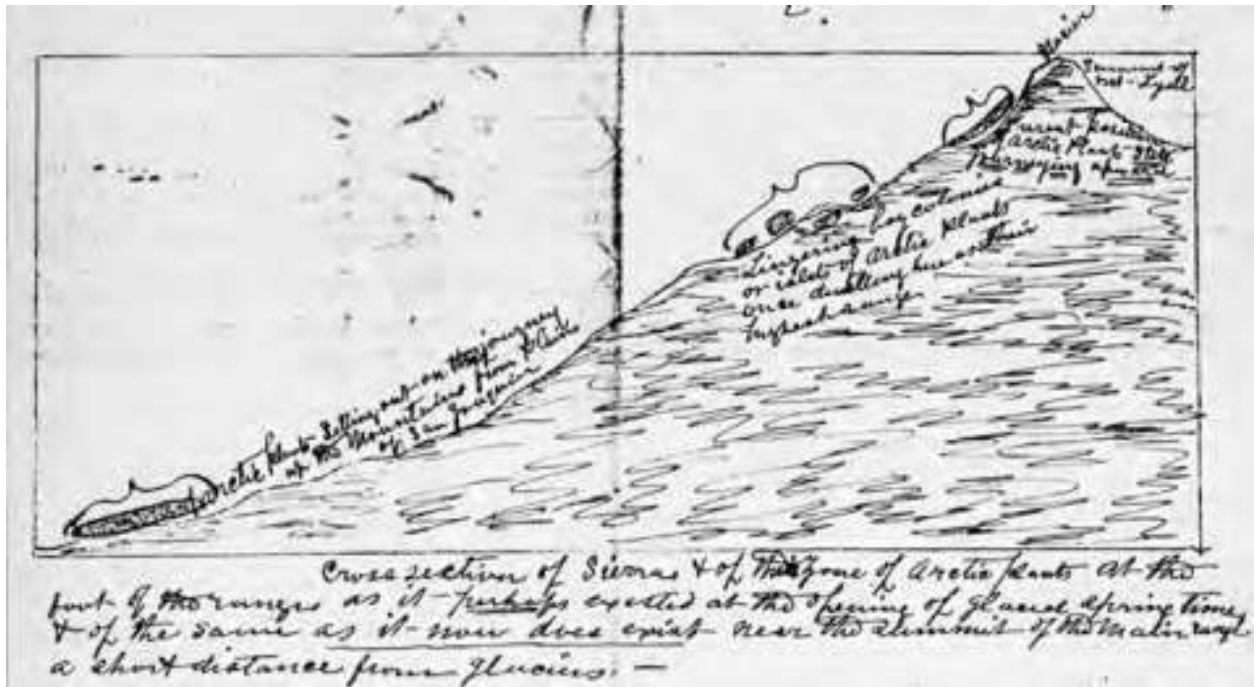 Glacier
Summit of
Mt. Lyell
Present Position
Arctic Plants Still
Journeying upward
Lingering lag colonies
or of Arctic Plants
once dwelling here as their
highest range
Arctic Plants Setting out on the journey
up the Mountains from Plains
of San Joaquin
Cross section of Sierra & of the Zone of Arctic plants at the
foot of the range as it perhaps existed at the opening of glacial springtime
& of the same as it now does exist near the summit of the main range
a short distance from glaciers. —